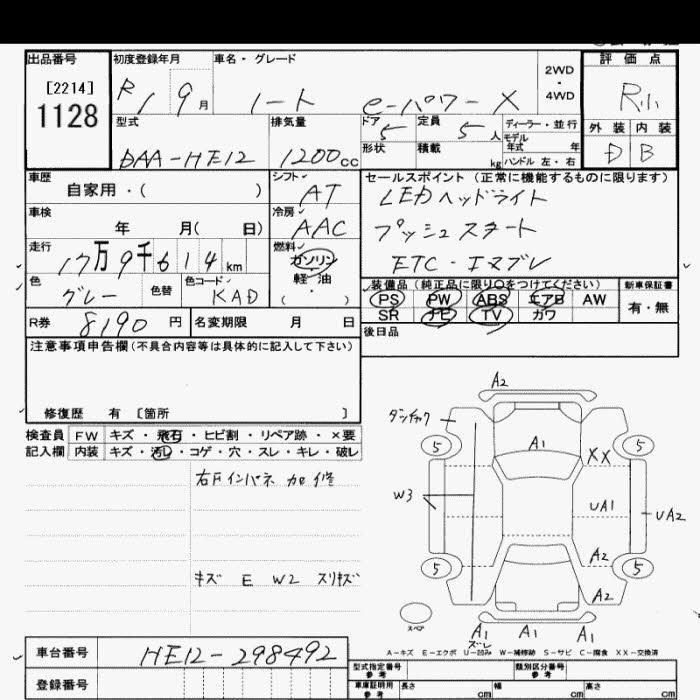 出品番号 初度登録年月 車名・グレード 2WD・4WD 評価点
[2214]
1128
R1 9月 ノート e-パワーX R小
型式 排気量 ドア 定員 ディーラー・並行 外装 内装
DAA-HE12 1200cc 5 5人 モデル年式 年 D B
形状 積載 kg ハンドル 左・右
車歴 シフト セールスポイント(正常に機能するものに限ります)
自家用・( ) AT LEDヘッドライト
車検 冷房 プッシュスタート
年 月( 日) AAC
走行 燃料 ETC・エマブレ
17万9千614km ガソリン・軽油・( )
色 色替 色コード 装備品(純正品に限り○をつけてください) 新車保証書
グレー KAD PS PW ABS エアB AW 有・無
SR ナビ TV カワ
R券 8190円 名変期限 月 日 後日品
注意事項申告欄(不具合内容等は具体的に記入して下さい)
修復歴 有 [箇所 ]
検査員記入欄 FW キズ・飛石・ヒビ割・リペア跡・×要
内装 キズ・汚レ・コゲ・穴・スレ・キレ・破レ
右Fインパネ 加修
キズ E W2 スリキズ
A2
5 A1 XX 5
W3 UA1 UA2
A2
5 5
A2
スペア A1 A1 A1
ズレ
A-キズ E-エクボ U-凹み W-補修跡 S-サビ C-腐食 XX-交換済
車台番号 HE12-298492
登録番号
型式指定番号 参考 類別区分番号 参考
車庫証明用 参考 長さ cm 幅 cm 高さ cm